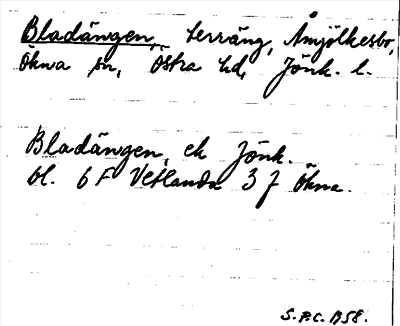 Bladängen, terräng, Åmjölkesbo,
Ökna sn, Östra hd, Jönk. l.
Bladängen, ek Jönk.
bl. 6 F Vetlanda 3 f Ökna.
S.P.C. 1958.